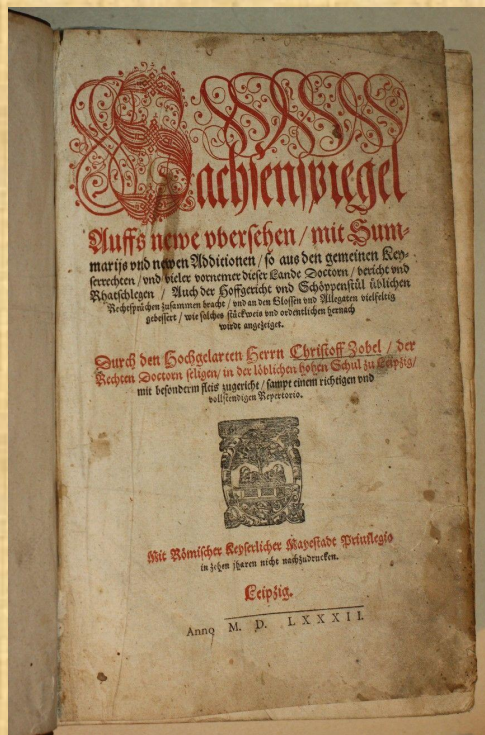 Sachsenspiegel
Auffs newe vbersehen / mit Sum-
marijs vnd newen Additionen / so aus den gemeinen Key-
serrechten / vnd vieler vornemer dieser Lande Doctorn / bericht vnd
Rhatschlegen / Auch der Hoffgericht vnd Schöppenstül üblichen
Rechtsprüchen zusammen bracht / vnd an den Glossen vnd Allegaten vielfeltig
gebessert / wie solches stückweis vnd ordentlichen hernach
wirdt angezeiget.
Durch den Hochgelarten Herrn Christoff Zobel / der
Rechten Doctorn seligen / in der löblichen hohen Schul zu Leipzig /
mit besonderm fleis zugericht / sampt einem richtigen vnd
vollstendigen Repertorio.
Mit Römischer Keyserlicher Mayestadt Priuilegio
in zehen jharen nicht nachzudrucken.
Leipzig.
Anno M. D. LXXXII.